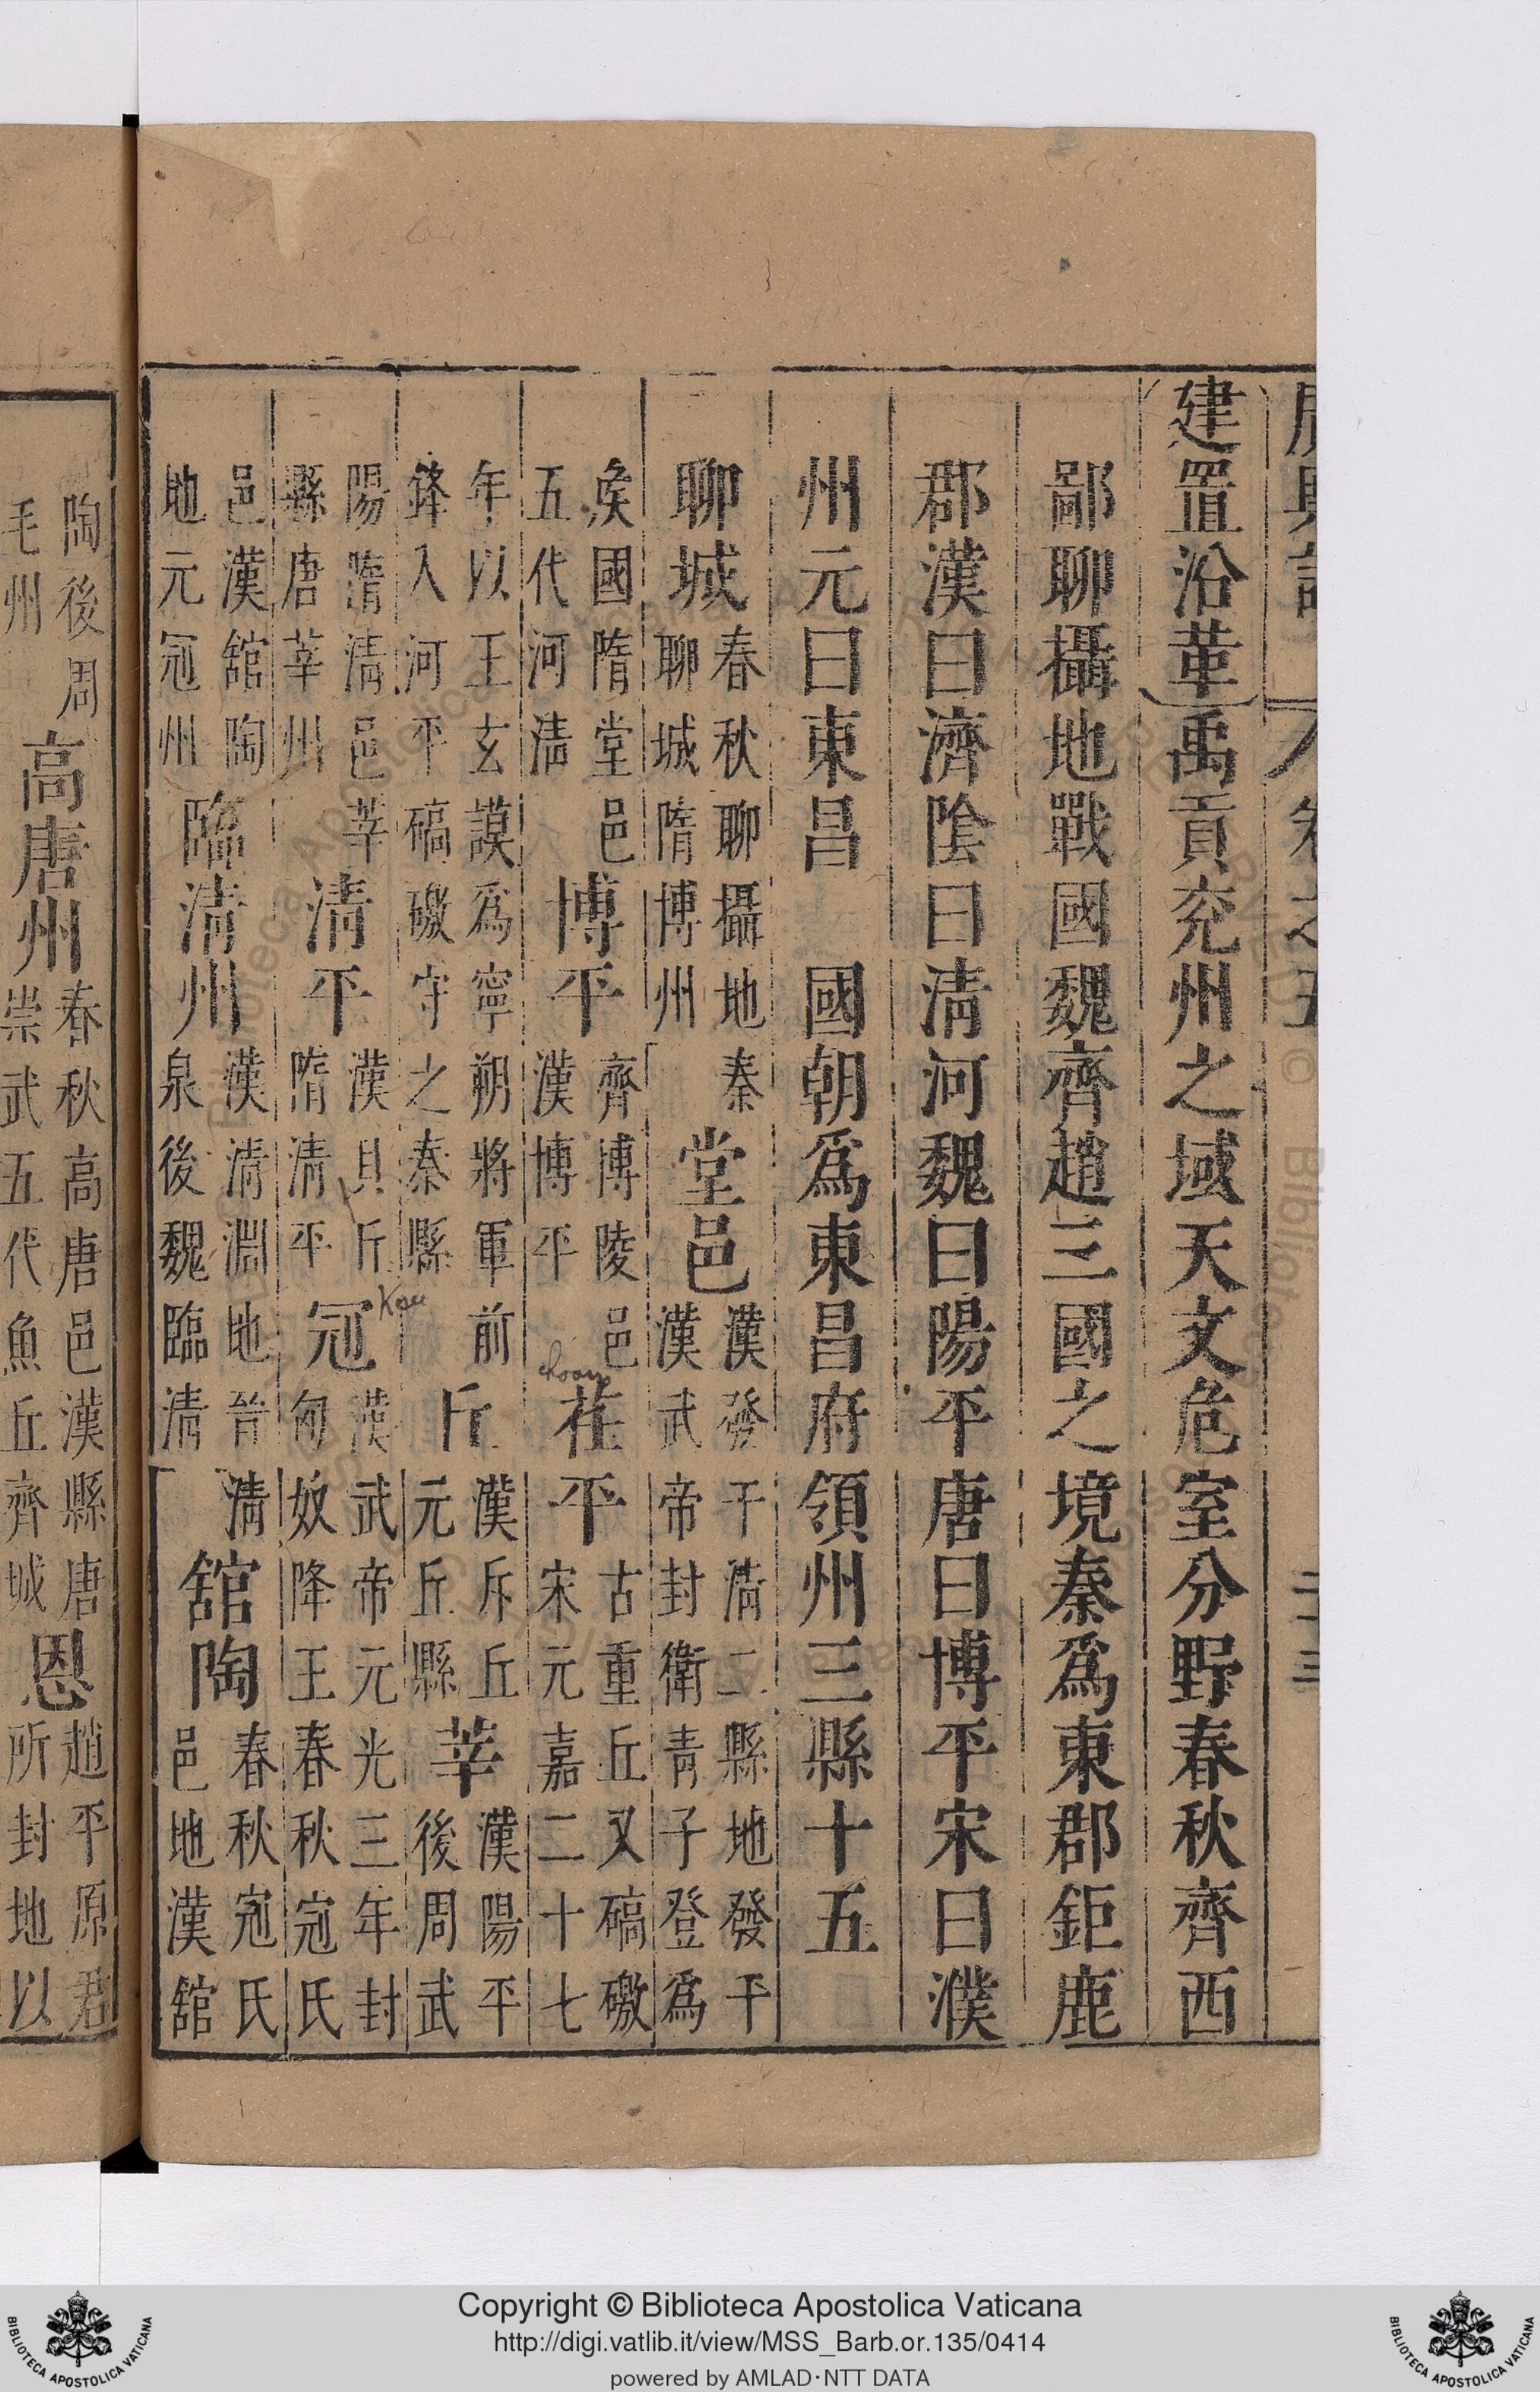 廣輿記 卷之五
建置沿革禹貢兖州之域天文危室分野春秋齊西
鄙聊攝地戰國魏齊趙三國之境秦爲東郡鉅鹿
郡漢曰濟陰曰清河魏曰陽平唐曰博平宋曰濮
州元曰東昌 國朝爲東昌府領州三縣十五
聊城 春秋聊攝地秦 聊城隋博州 堂邑 漢發干清二縣地發干 漢武帝封衛青子登爲
矦國隋堂邑 五代河清 博平 齊博陵邑 漢博平 茌平 古重丘又碻磝 宋元嘉二十七
年以王玄謨爲寧朔將軍前 鋒入河平碻磝守之秦縣 丘 漢斥丘 元丘縣 莘 漢陽平 後周武
陽隋清邑莘 縣唐莘州 清平 漢貝丘 隋清平 冠 漢武帝元光三年封 匈奴降王春秋冠氏
邑漢館陶 地元冠州 臨清州 漢清淵地晉清 泉後魏臨清 館陶 春秋冠氏 邑地漢館
陶後周 毛州 高唐州 春秋高唐邑漢縣唐 崇武五代魚丘齊城 恩 趙平原君 所封地以
Kou
Copyright © Biblioteca Apostolica Vaticana
http://digi.vatlib.it/view/MSS_Barb.or.135/0414
powered by AMLAD·NTT DATA
BIBLIOTECA APOSTOLICA VATICANA
BIBLIOTECA APOSTOLICA VATICANA